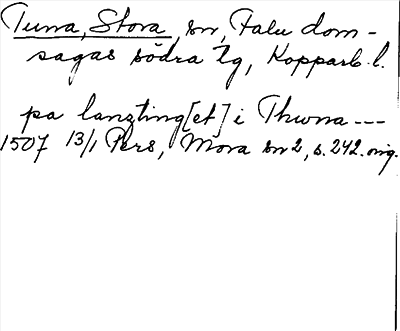 Tuna, Stora, sn, Falu dom-
sagas södra tg, Kopparb. l.
pa langting[et] i Thwna ---
1507 13/1 Pers, Mora sn 2, s. 242. orig.